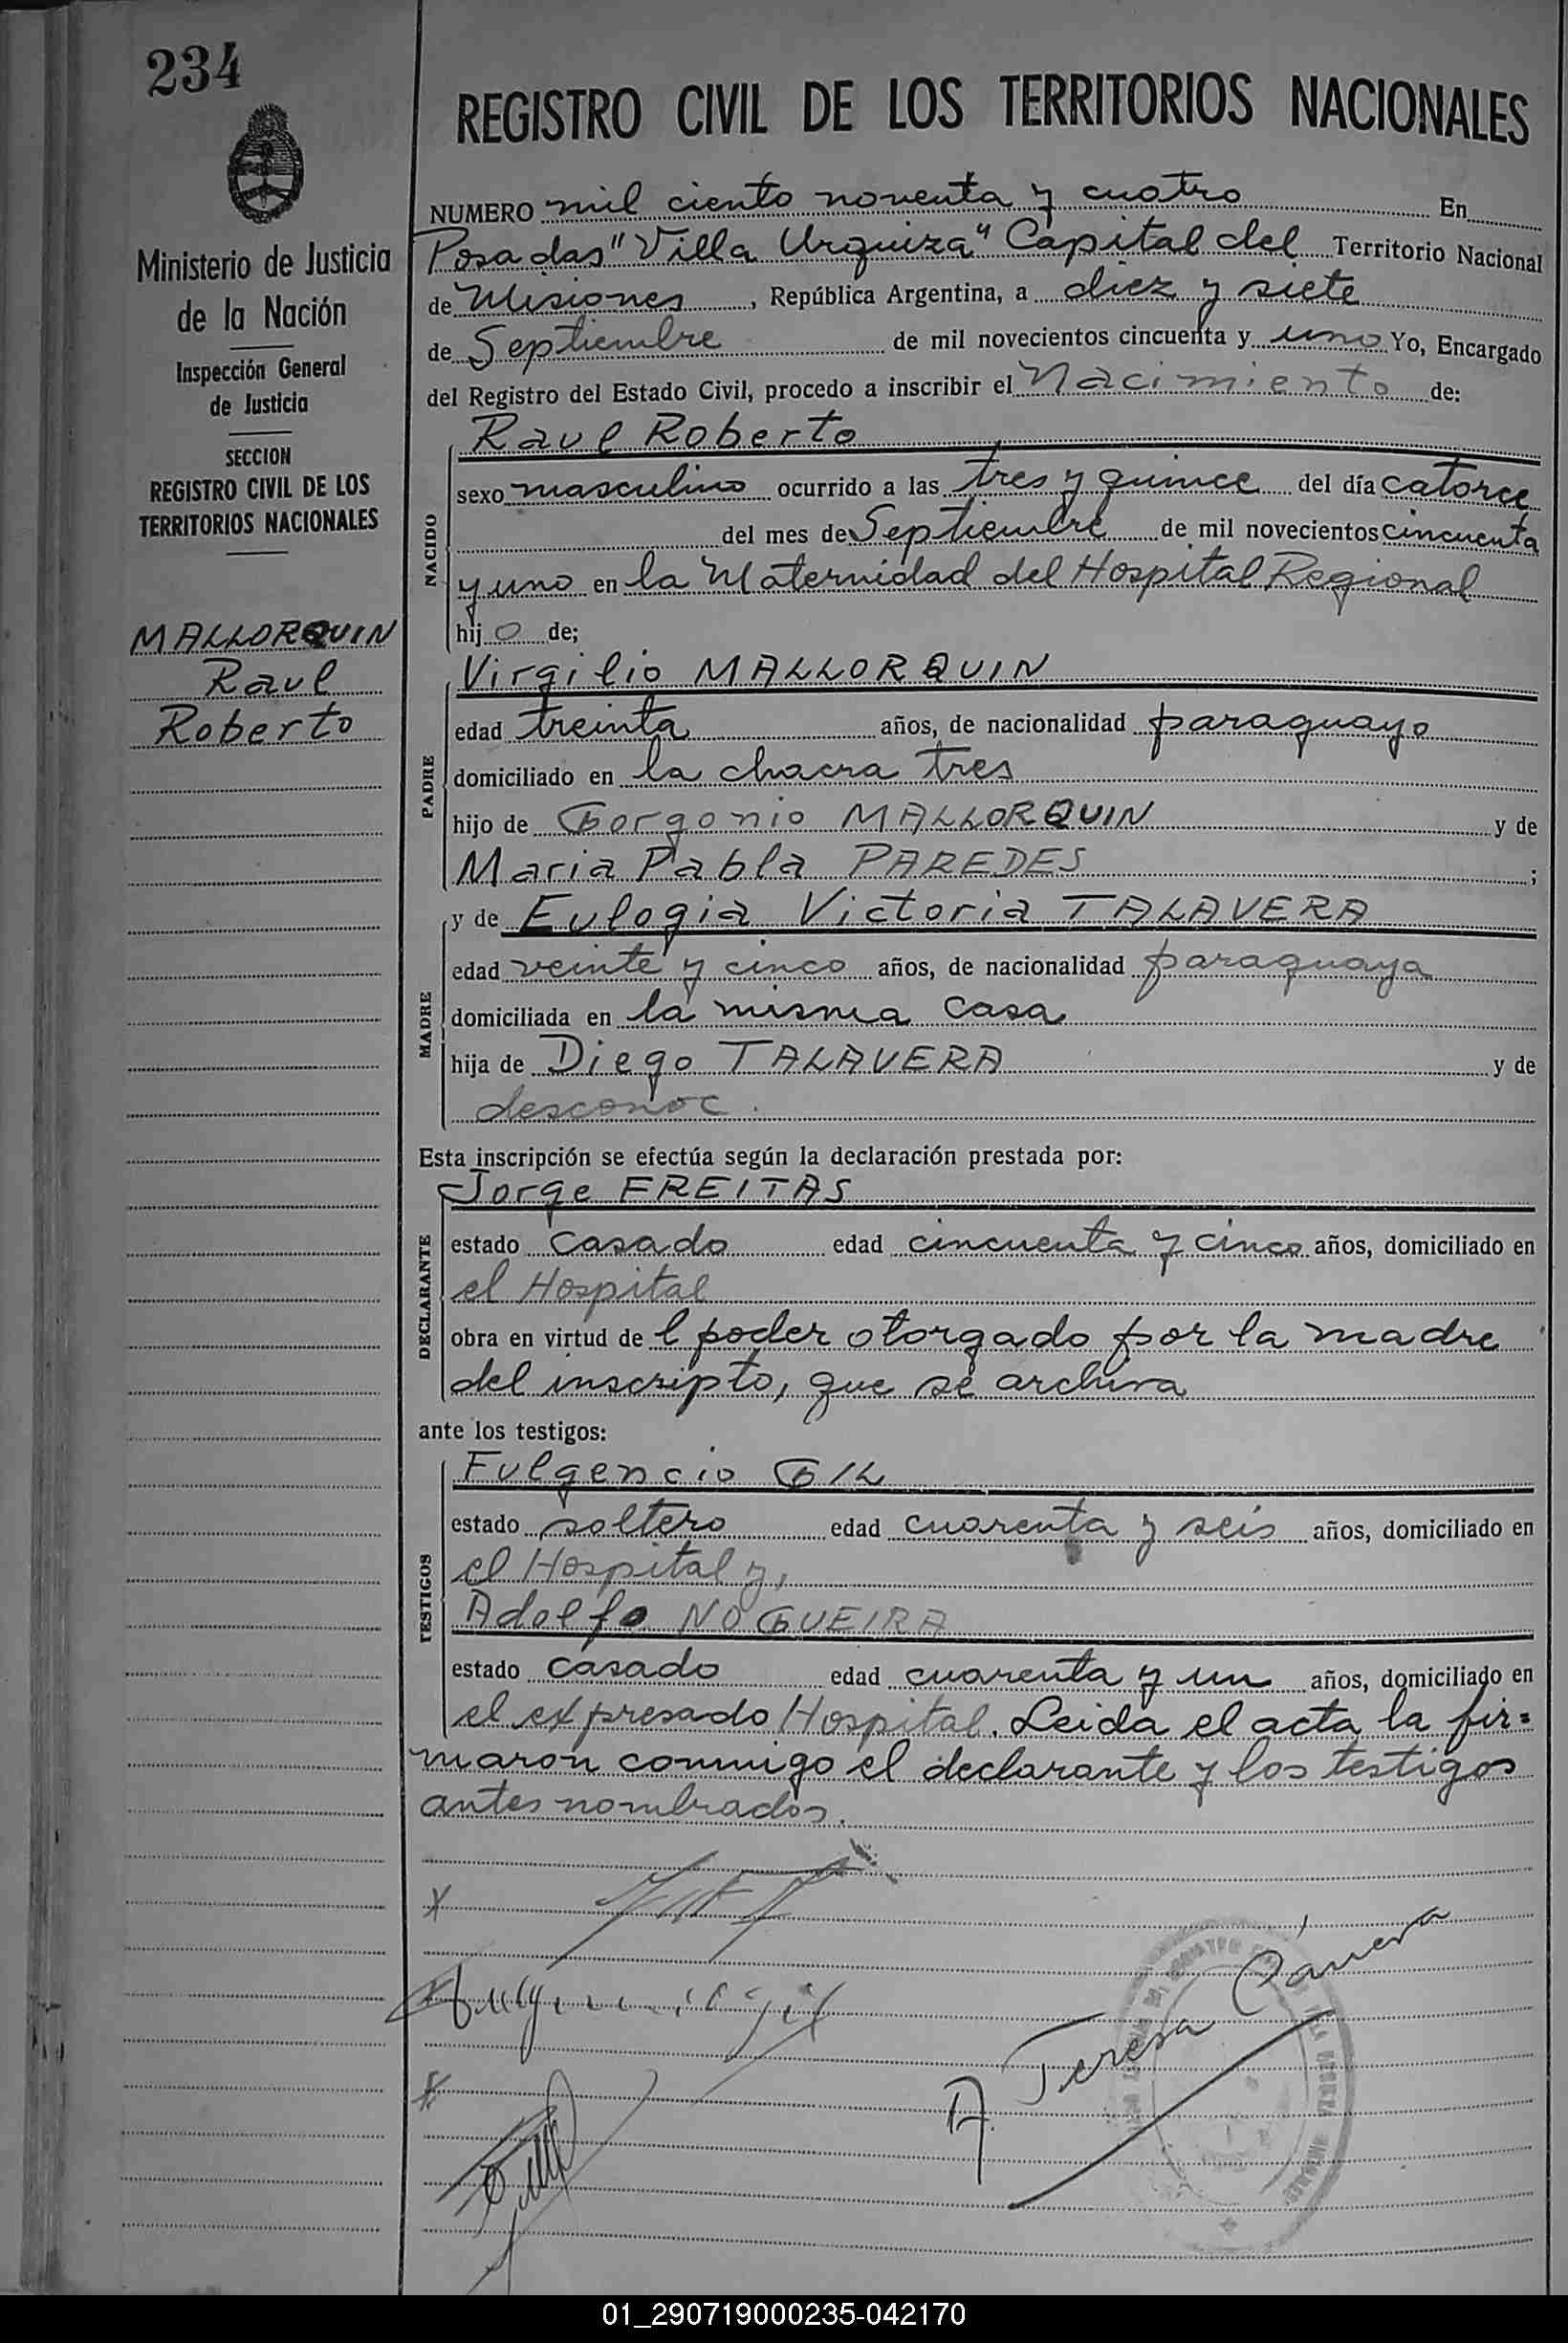 234
REGISTRO CIVIL DE LOS TERRITORIOS NACIONALES
Ministerio de Justicia
de la Nación
Inspección General
de Justicia
SECCION
REGISTRO CIVIL DE LOS
TERRITORIOS NACIONALES
MALLORQUIN
Raul
Roberto
NUMERO mil ciento noventa y cuatro En
Posadas "Villa Urquiza" Capital del Territorio Nacional
de Misiones, República Argentina, a diez y siete
de Septiembre de mil novecientos cincuenta y uno Yo, Encargado
del Registro del Estado Civil, procedo a inscribir el Nacimiento de:
Raul Roberto
NACIDO
sexo masculino ocurrido a las tres y quince del día catorce
del mes de Septiembre de mil novecientos cincuenta
y uno en la Maternidad del Hospital Regional
hijo de;
Virgilio MALLORQUIN
PADRE
edad treinta años, de nacionalidad paraguayo
domiciliado en la chacra tres
hijo de Gorgonio MALLORQUIN y de
Maria Pabla PAREDES ;
y de Eulogia Victoria TALAVERA
MADRE
edad veinte y cinco años, de nacionalidad paraguaya
domiciliada en la misma casa
hija de Diego TALAVERA y de
desconoc.
Esta inscripción se efectúa según la declaración prestada por:
Jorge FREITAS
DECLARANTE
estado casado edad cincuenta y cinco años, domiciliado en
el Hospital
obra en virtud de l poder otorgado por la madre
del inscripto, que se archiva
ante los testigos:
Fulgencio GIL
TESTIGOS
estado soltero edad cuarenta y seis años, domiciliado en
el Hospital y,
Adolfo NOGUEIRA
estado casado edad cuarenta y un años, domiciliado en
el expresado Hospital. Leida el acta, la fir=
maron conmigo el declarante y los testigos
antes nombrados.
A. Teresa
01_290719000235-042170